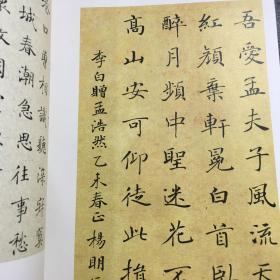 吾愛孟夫子風流天
紅顏棄軒冕白首臥
醉月頻中聖迷花不
高山安可仰徒此揖
李白贈孟浩然乙未春正楊明
城春潮急思往事愁